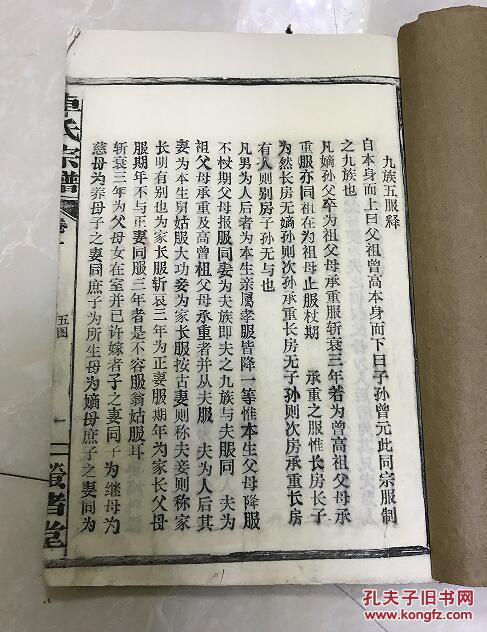 九族五服释
自本身而上曰父祖曾高本身而下曰子孙曾元此同宗服制
之九族也
凡嫡孙父卒为祖父母承重服斩衰三年若为曾高祖父母承
重服亦同祖在为祖母止服杖期 承重之服惟长房长子
为然长房无嫡孙则次孙承重长房无子孙则次房承重长房
有人则别房子孙无与也
凡男为人后者为本生亲属孝服皆降一等惟本生父母降服
不杖期父母报服同妻为夫族即夫之九族与夫服同 夫为
祖父母承重及高曾祖父母承重者并从夫服 夫为人后其
妻为本生舅姑服大功妾为家长服按古妻则称夫妾则称家
长明有别也为家长服斩衰三年为正妻服期年为家长父母
服期年不与正妻同服三年者是不容服翁姑服耳
斩衰三年为父母女在室并已许嫁者子之妻同子为继母为
慈母为养母子之妻同庶子为所生母为嫡母庶子之妻同为
氏宗谱
卷
五图
一
堂
孔夫子旧书网
www.kongfz.com